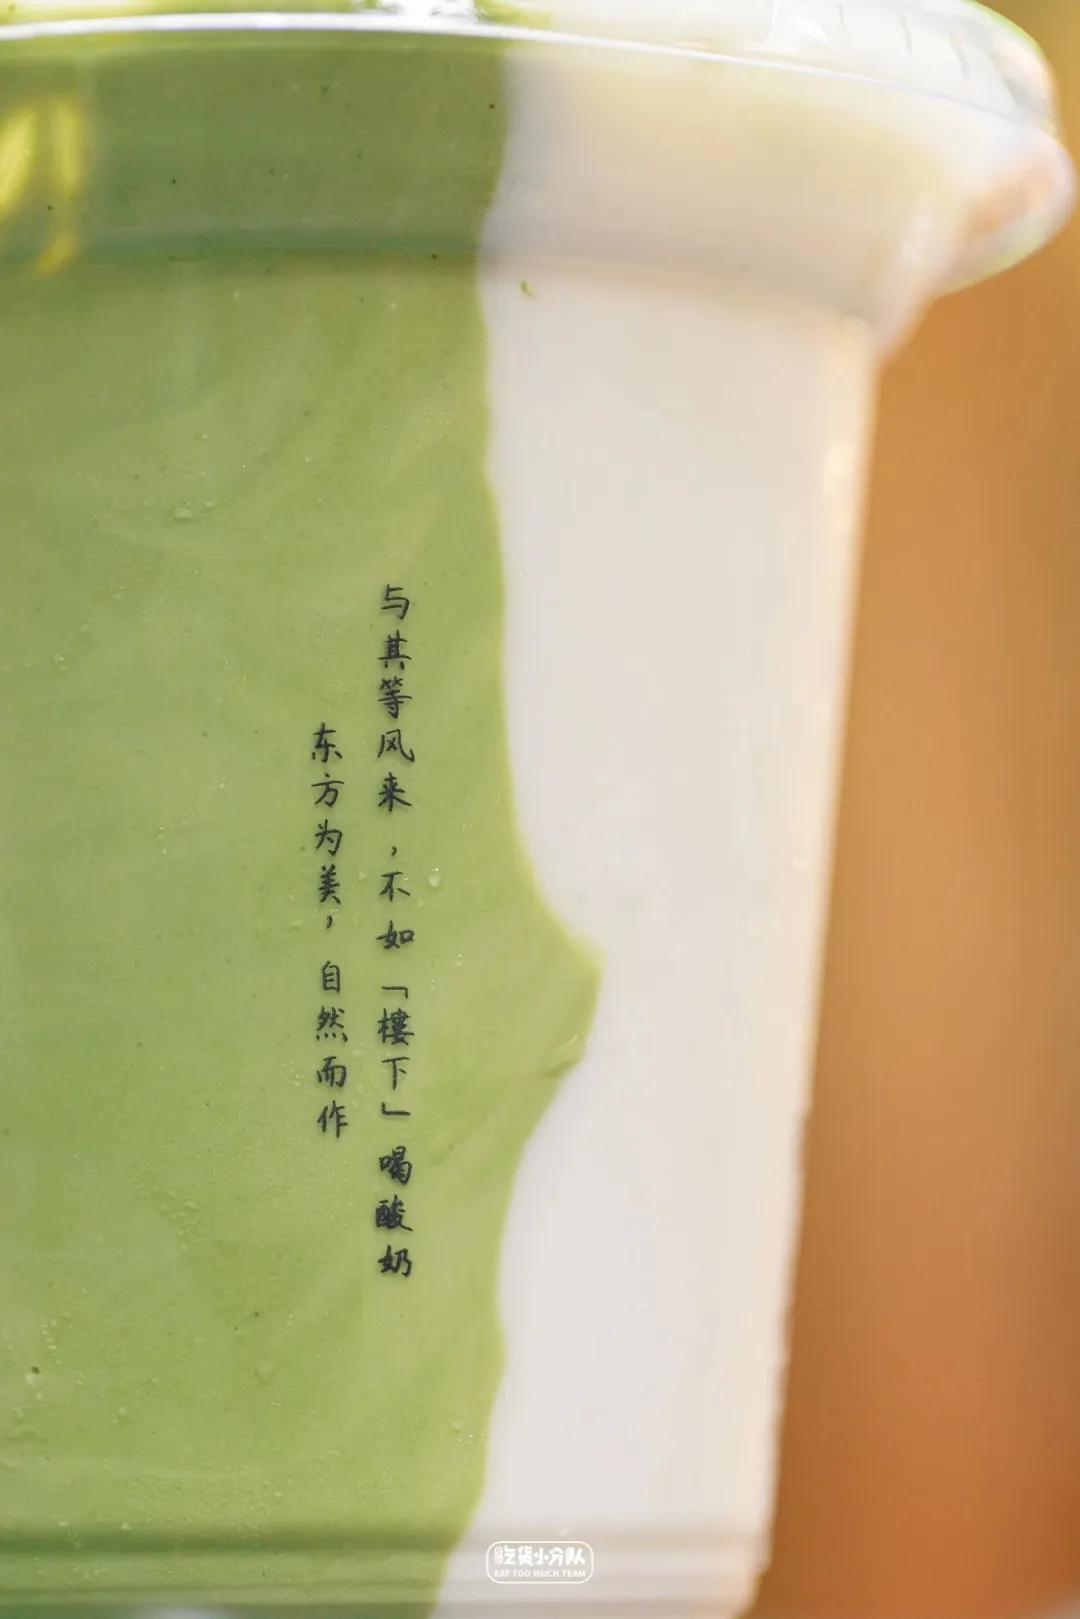 与其等风来，不如「樓下」喝酸奶
东方为美，自然而作
吃货小分队
EAT TOO MUCH TEAM